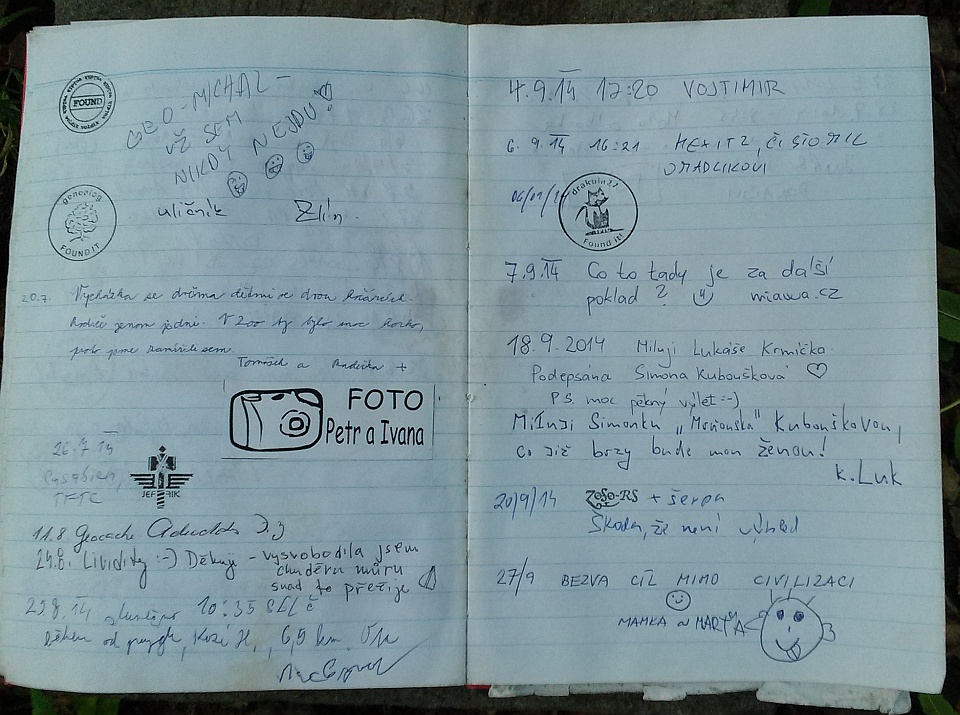 FOUND
GEO-MICHAL -
UŽ SEM
NIKDY NEJDU!
geneolog
FOUND IT
uličník Zlín.
20.7. Vycházka se dvěma dětmi ve dvou kočárcích.
Rodiče jenom jedni. V Zoo by bylo moc horko,
proto jsme zamířili sem.
Tomášek a Radečka +
FOTO
Petr a Ivana
26.7.
TFTC
JEF RIK
11.8 Geocache
24.8. Lividity :-) Děkuji - vysvobodila jsem
chuděru můru
snad to přežije
25.8. 14 10:35
od 6,9 km
4.9.14 17:20 VOJTIMIR
6.9.14 16:21
drakuln27
Found it!
7.9.14 Co to tady je za další
poklad? wiawa.cz
18.9.2014 Miluji Lukáše Krmíčka
Podepsána Simona Kuboušková ♡
P.S. moc pěkný výlet :-)
Miluji Simonku Kubouškovou,
co již brzy bude mou ženou!
K. Luk
20/9/14 ZoSo-RS + šerpa
Škoda, že není výhled
27/9 BEZVA CÍL MIMO CIVILIZACI
MAMKA MARTY